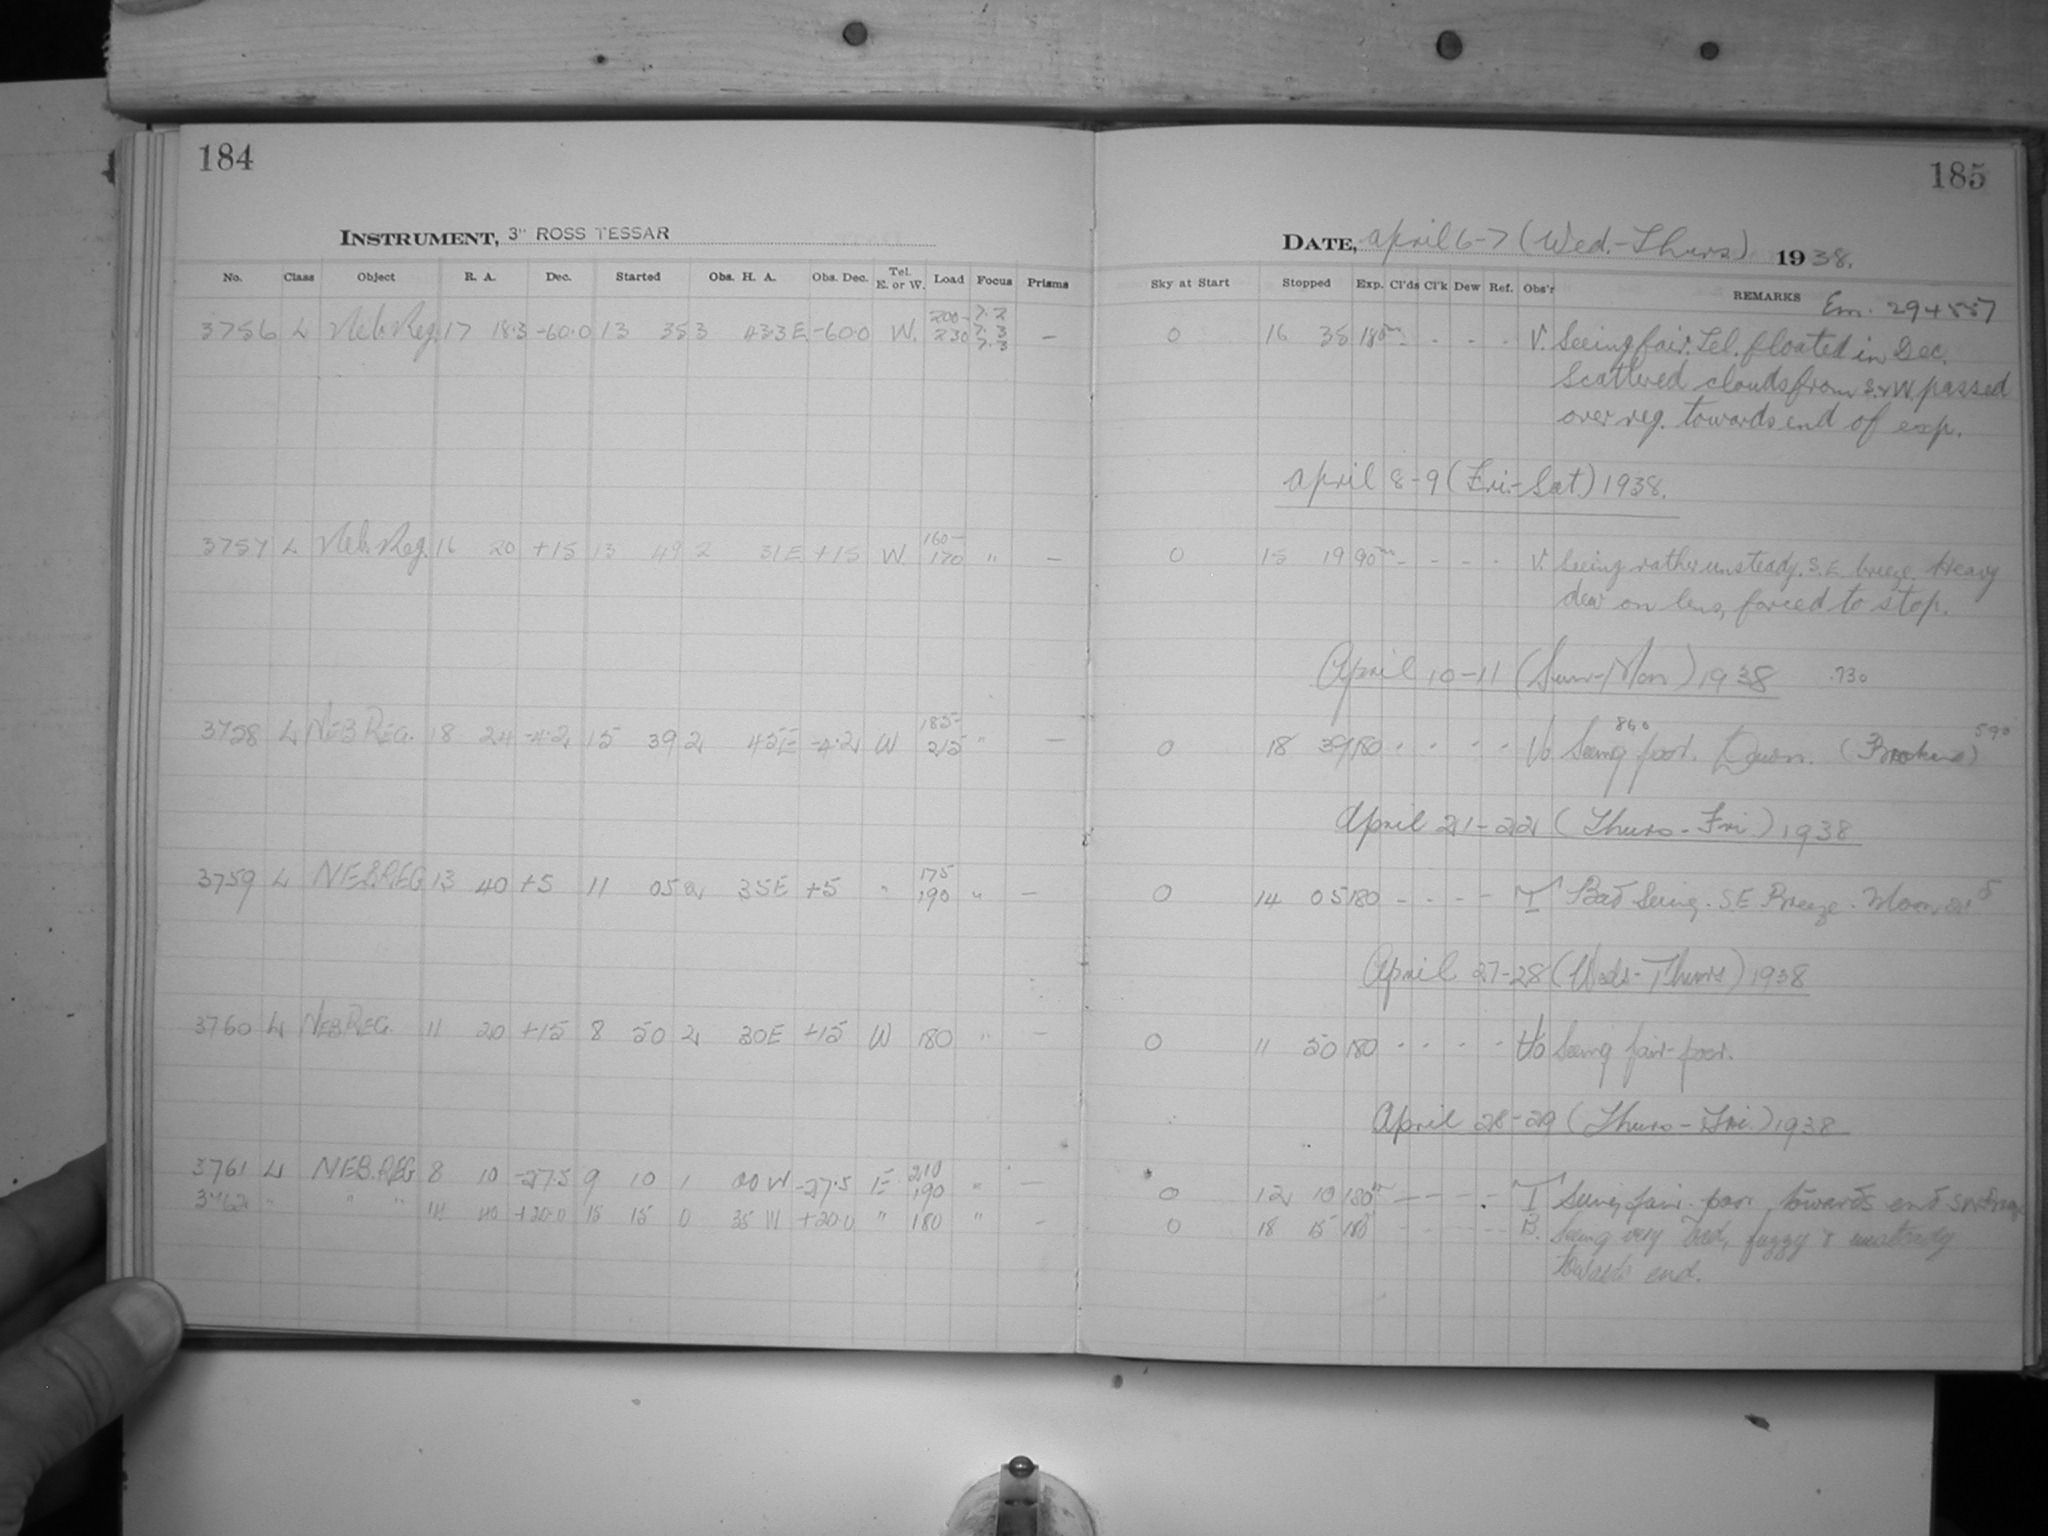 184
INSTRUMENT, 3" ROSS TESSAR
No. Class Object R. A. Dec. Started Obs. H. A. Obs. Dec. Tel. E. or W. Load Focus Prisms
3756 L Neb. Reg. 17 18.3 -60.0 13 35 3 43.3 E -60.0 W. 200- 230 7.2 7.3 7.3 —
3757 L Neb. Reg. 16 20 +15 13 49 2 31 E +15 W 160- 170 " —
3758 L NEB REG. 18 24 -4.2 15 39 2 45 E -4.2 W 185- 215 " —
3759 L NEB.REG 13 40 +5 11 05 2 35 E +5 " 175 190 " —
3760 L NEB.REG. 11 20 +15 8 50 2 30 E +15 W 180 " —
3761 L NEB.REG 8 10 -27.5 9 10 1 00 W -27.5 E 210 190 " —
3762 " " " 14 40 +20.0 15 15 0 35 W +20.0 " 180 " -
185
DATE, April 6-7 (Wed.-Thurs) 1938.
Sky at Start Stopped Exp. Cl'ds Cl'k Dew Ref. Obs'r REMARKS Em. 294557
0 16 35 180m - - - - V. Seeing fair. Tel. floated in Dec.
Scattered clouds from S.+W. passed
over reg. towards end of exp.
April 8-9 (Fri.-Sat.) 1938.
0 15 19 90m - - - - V. Seeing rather unsteady. S.E. breeze. Heavy
dew on lens, forced to stop.
April 10-11 (Sun-Mon) 1938 .730
0 18 39 180 - - - - Vo Seeing poor. 860 Dawn. 590
April 21-22 (Thurs-Fri) 1938
0 14 05 180 - - - - T Bad Seeing. SE Breeze. Moon
April 27-28 (Weds-Thurs) 1938
0 11 50 180 - - - - Vo Seeing fair-poor.
April 28-29 (Thurs-Fri.) 1938
0 12 10 180m - - - - T Seeing fair-poor, towards end
0 18 15 180 - - - - B. Seeing very bad, fuzzy & unsteady
towards end.